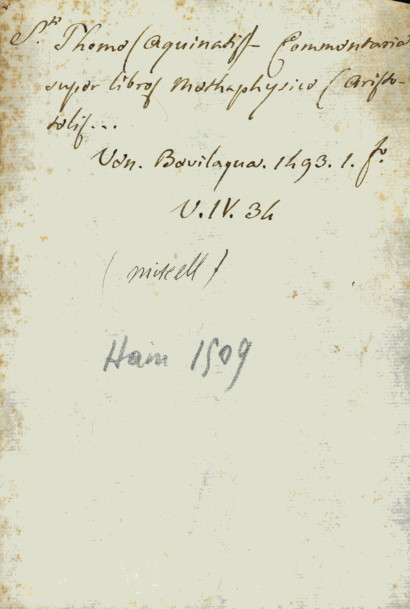 Sti Thome Aquinatis Commentaria
super libros Methaphysice Aristo-
telis...
Ven. Bevilaqua. 1493. 1. fo.
V. IV. 34
Hain 1509